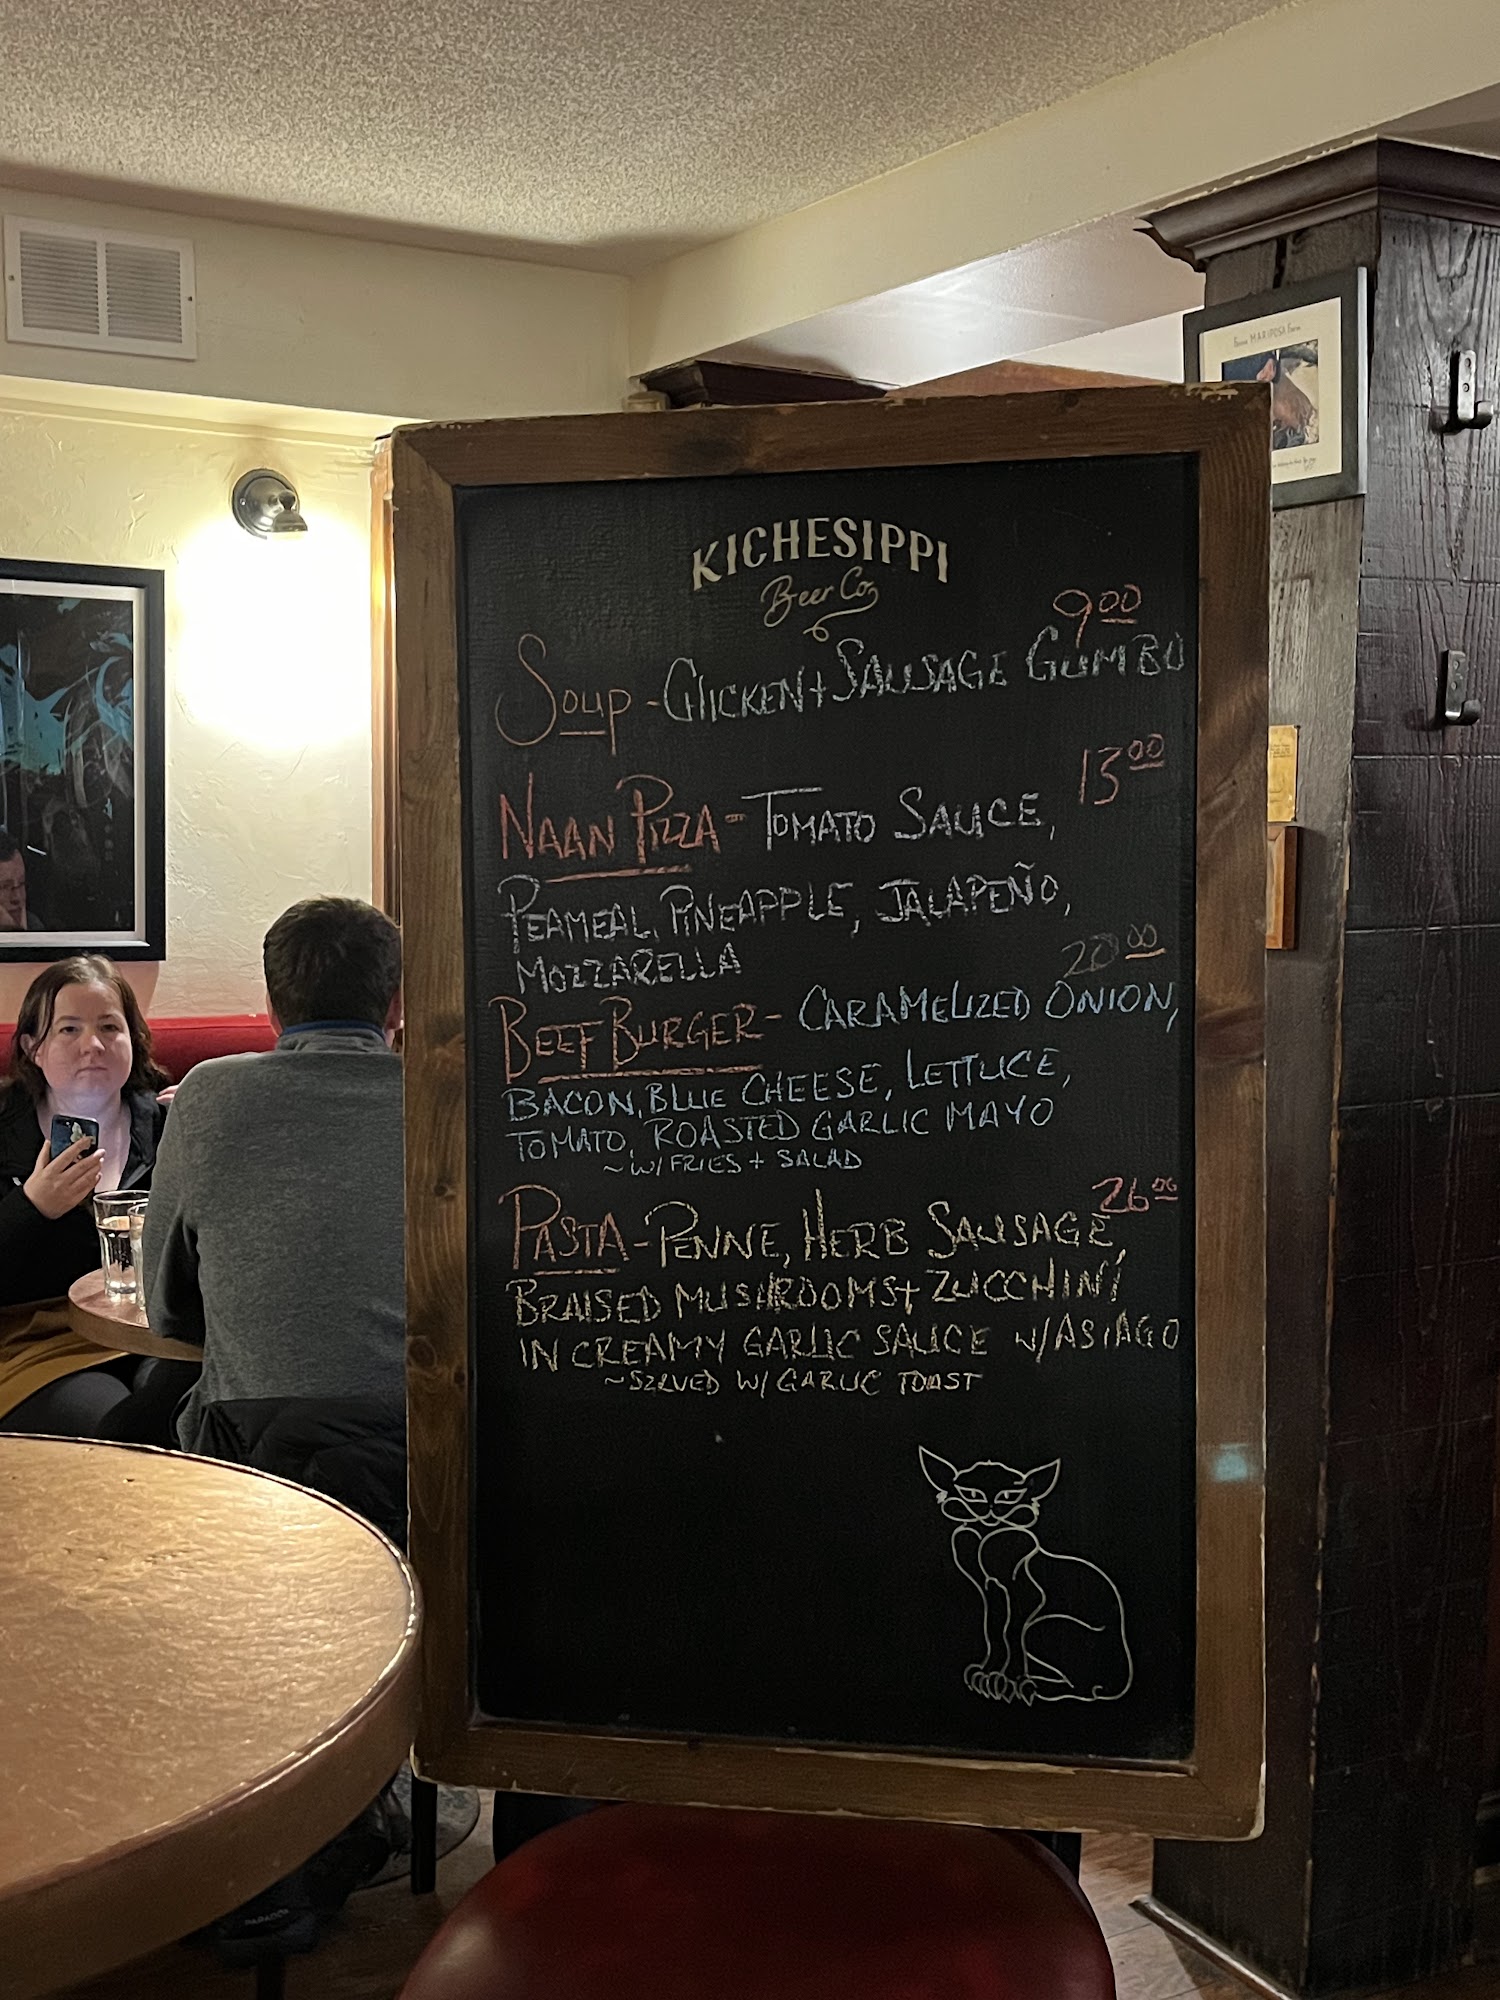 KICHESIPPI
Beer Co.
9.00
SOUP - CHICKEN + SAUSAGE GUMBO
15.00
NAAN PIZZA - TOMATO SAUCE,
PEAMEAL, PINEAPPLE, JALAPEÑO,
MOZZARELLA
20.00
BEEF BURGER - CARAMELIZED ONION,
BACON, BLUE CHEESE, LETTUCE,
TOMATO, ROASTED GARLIC MAYO
~ W/ FRIES + SALAD
26.00
PASTA - PENNE, HERB SAUSAGE,
BRAISED MUSHROOMS + ZUCCHINI
IN CREAMY GARLIC SAUCE W/ ASIAGO
~ SERVED W/ GARLIC TOAST
MARIPOSA